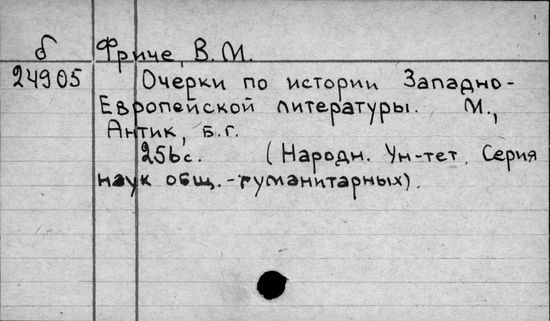 б Фриче, В. М.
24905 Очерки по истории Западно-
Европейской литературы. М.,
Антик, б.г.
256с. (Народн. Ун-тет. Серия
наук общ.-гуманитарных).